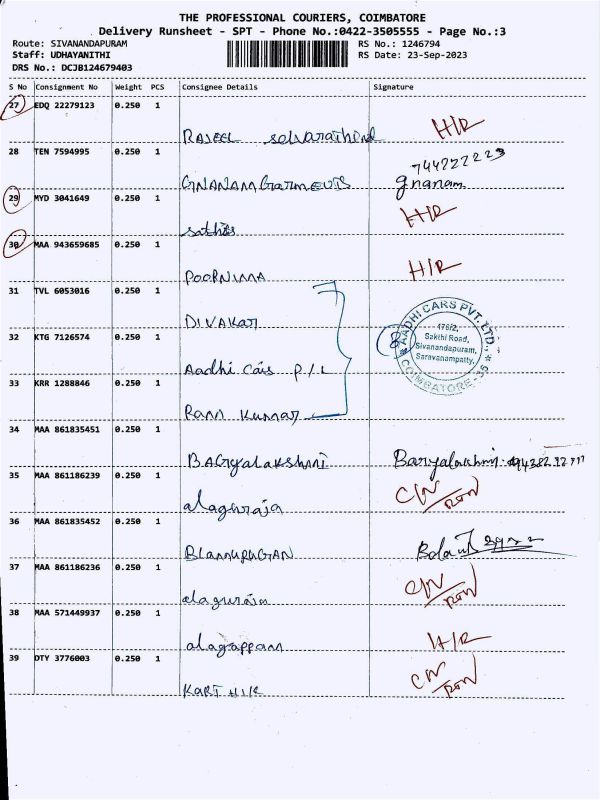 THE PROFESSIONAL COURIERS, COIMBATORE
Delivery Runsheet - SPT - Phone No.:0422-3505555 - Page No.:3
Route: SIVANANDAPURAM RS No.: 1246794
Staff: UDHAYANITHI RS Date: 23-Sep-2023
DRS No.: DCJB124679403
S No Consignment No Weight PCS Consignee Details Signature
27 EDQ 22279123 0.250 1
H/R
28 TEN 7594995 0.250 1
GNANAM Garments gnanam
29 MYD 3041649 0.250 1
H/R
30 MAA 943659685 0.250 1
POORNIMA H/R
31 TVL 6053016 0.250 1
DIVAKAR
AADHI CARS PVT. LTD.
476/2,
Sakthi Road,
Sivanandapuram,
Saravanampatty,
COIMBATORE-35
32 KTG 7126574 0.250 1
Aadhi Cars P/L
33 KRR 1288846 0.250 1
Ram Kumar
34 MAA 861835451 0.250 1
BAGYALAKSHMI
35 MAA 861186239 0.250 1
alaguraja
36 MAA 861835452 0.250 1
37 MAA 861186236 0.250 1
alaguraja
38 MAA 571449937 0.250 1
alagappan H/R
39 DTY 3776003 0.250 1
KARTHIK